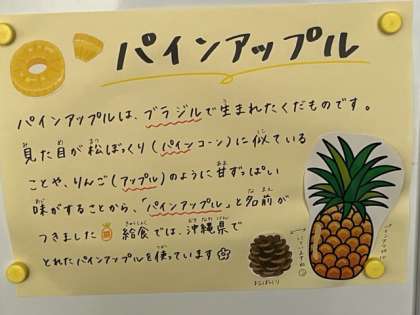 パインアップル
パインアップルは、ブラジルで生まれたくだものです。
見た目が松ぼっくり(パインコーン)に似ている
ことや、りんご(アップル)のように甘ずっぱい
味がすることから、「パインアップル」と名前が
つきました 給食では、沖縄県で
とれたパインアップルを使っています
まつぼっくり